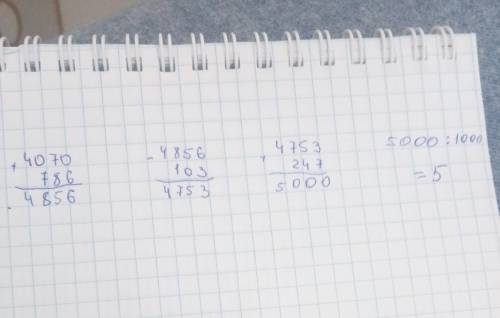 + 4070
786
4856
- 4856
103
4753
+ 4753
247
5000
5000 : 1000
= 5